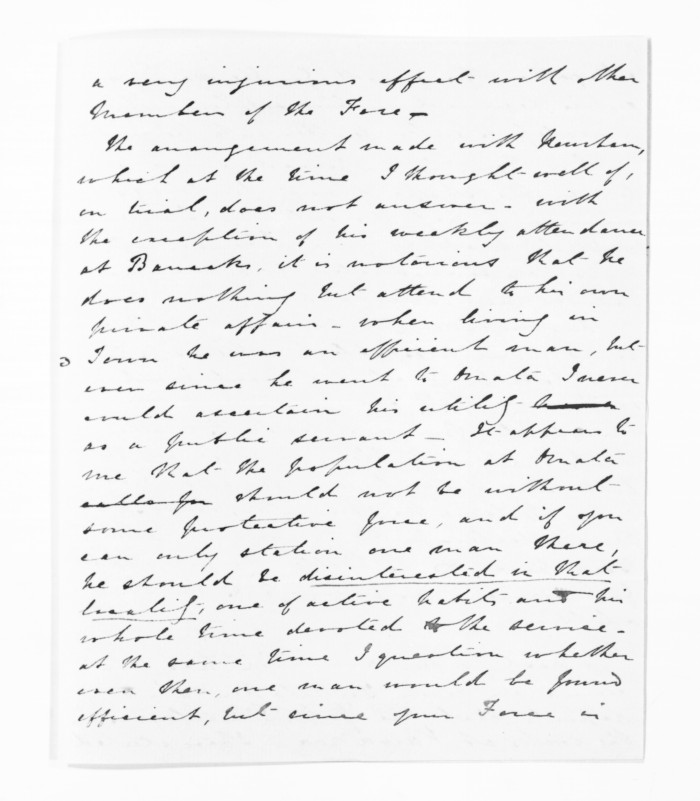 a very injurious effect with other
Members of the Force —
The arrangement made with Newsham,
which at the time I thought well of,
on trial, does not answer - with
the exception of his weekly attendance
at Barracks, it is notorious that he
does nothing but attend to his own
private affairs - when living in
Town he was an efficient man, but
ever since he went to Omata I never
could ascertain his utility
as a public servant - It appears to
me that the population at Omata
calls for should not be without
some protective force, and if you
can only station one man there,
he should be disinterested in that
locality, one of active habits and his
whole time devoted to the service -
at the same time I question whether
even then, one man would be found
efficient, but since your Force is